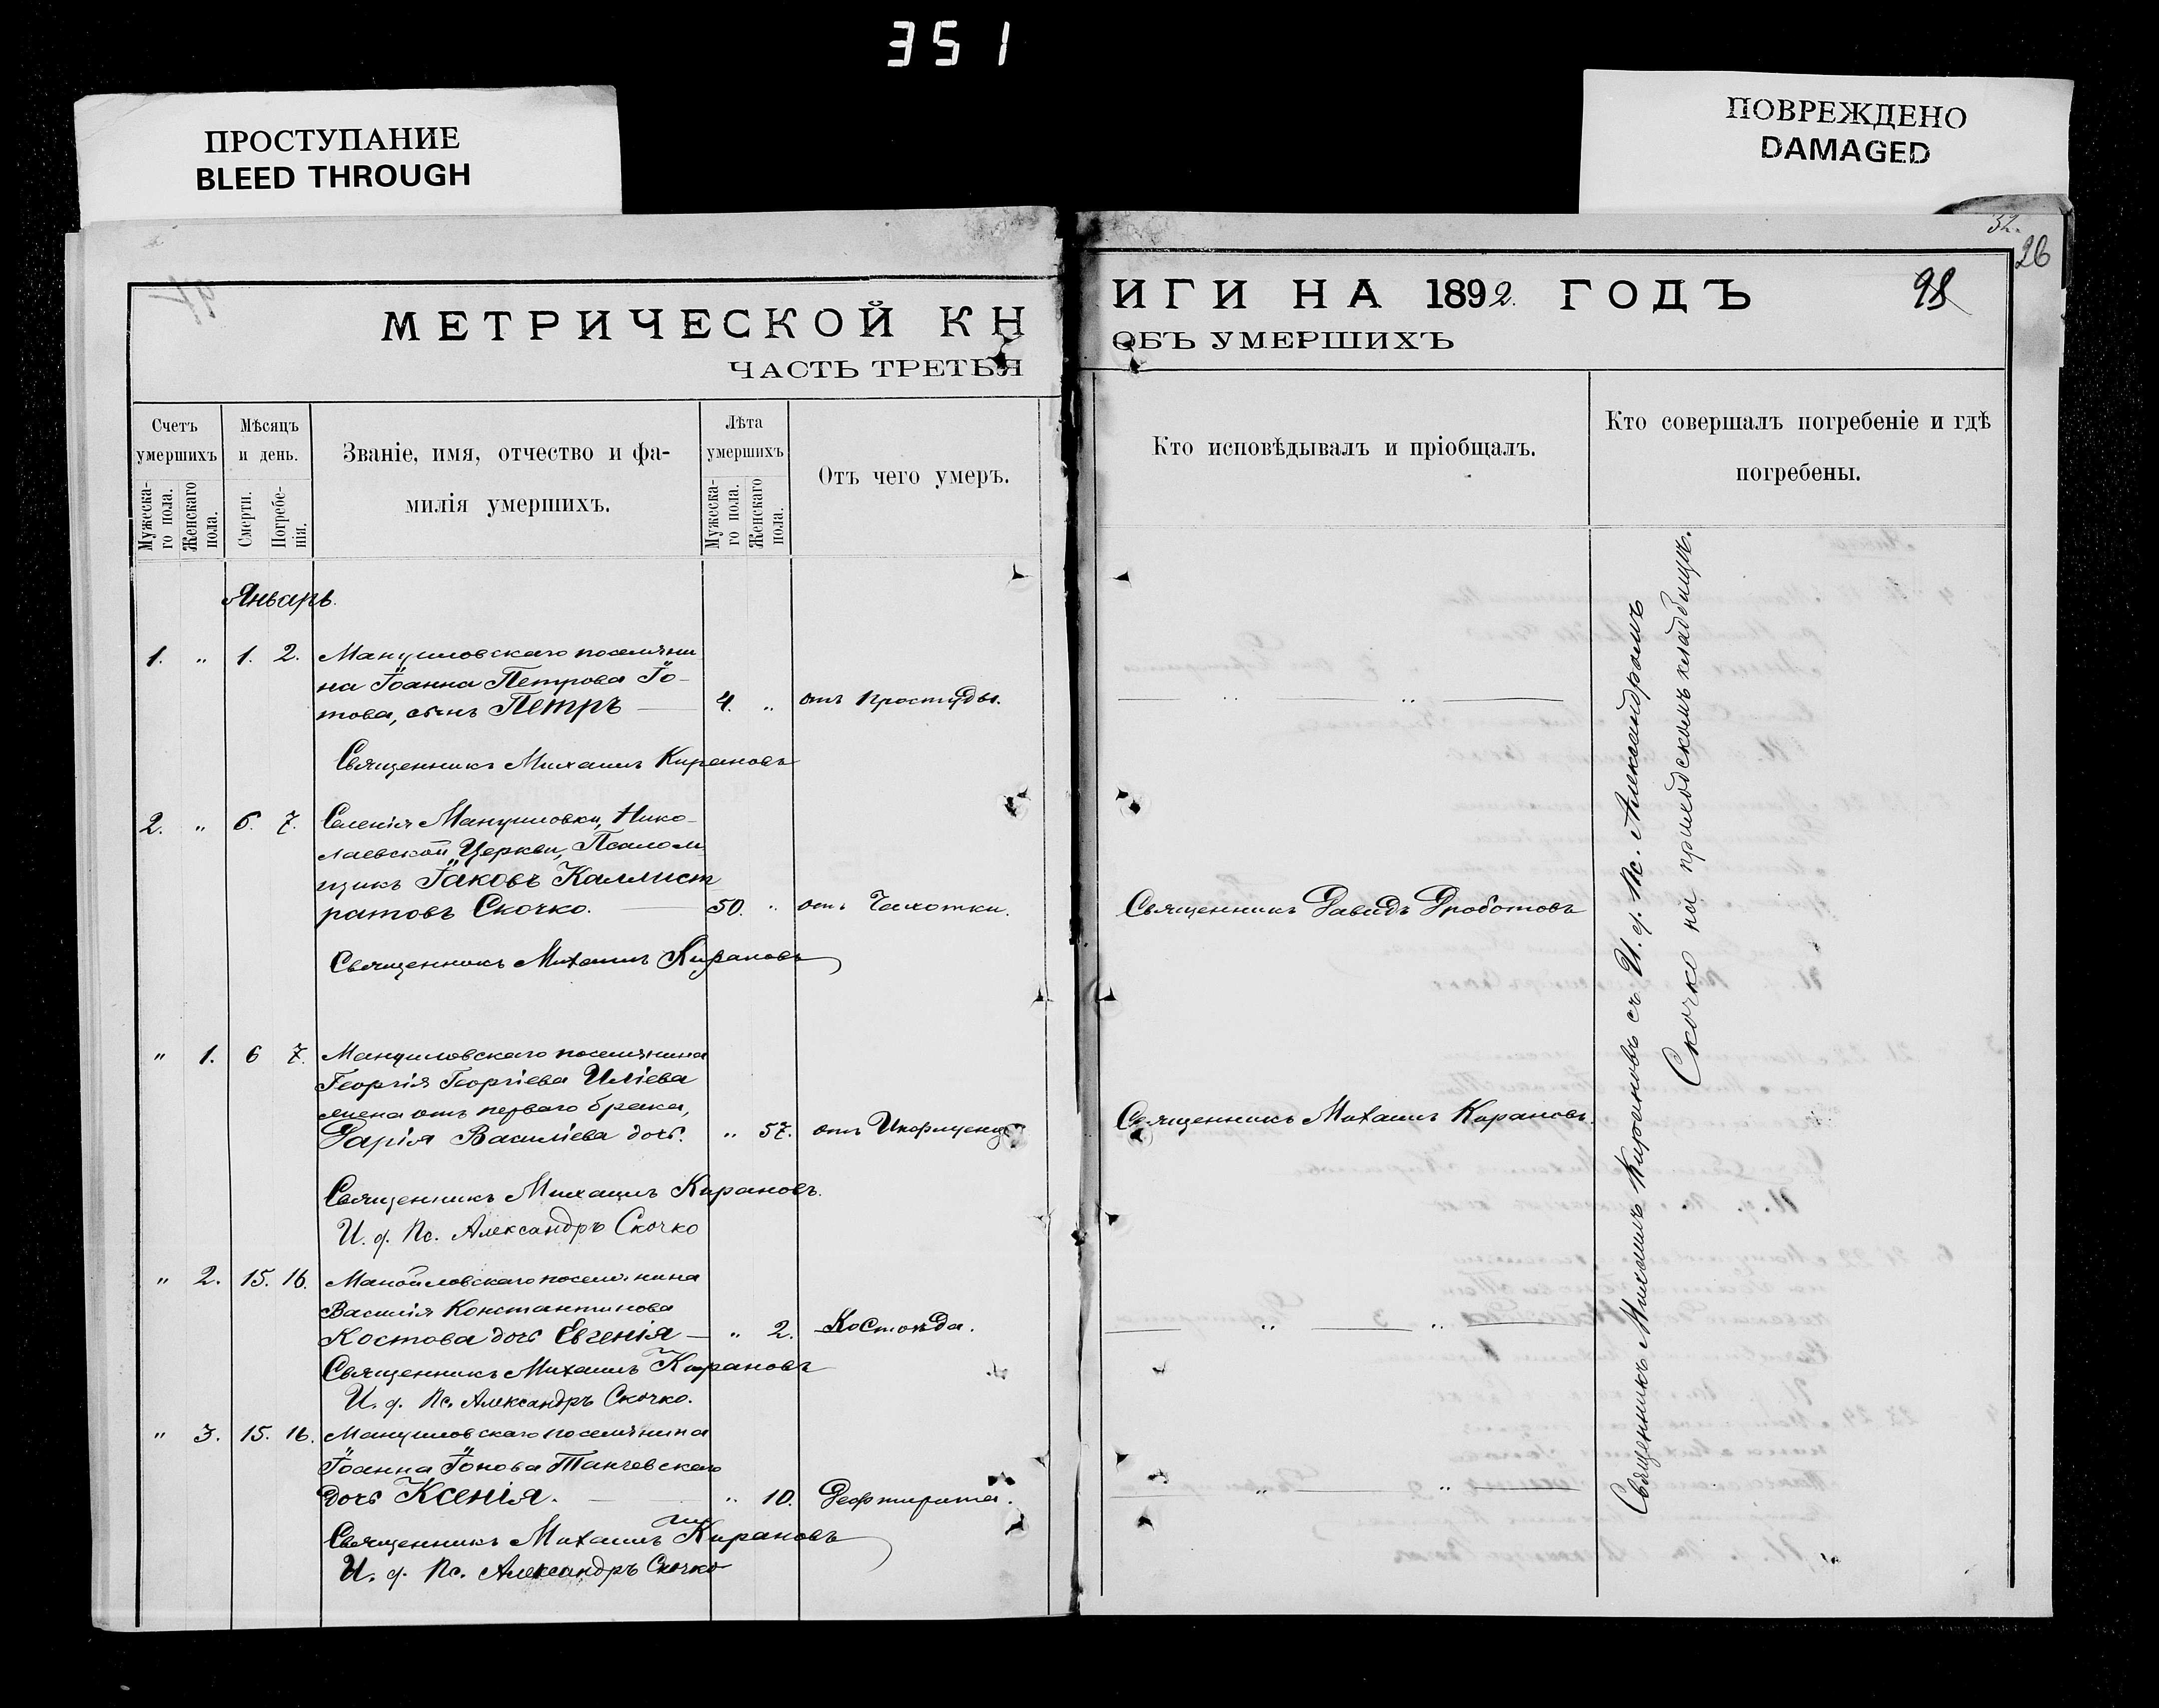 351
ПРОСТУПАНИЕ
BLEED THROUGH
ПОВРЕЖДЕНО
DAMAGED
32.
26
98
МЕТРИЧЕСКОЙ КНИГИ НА 1892. ГОДЪ
ЧАСТЬ ТРЕТЬЯ ОБЪ УМЕРШИХЪ
Счетъ умершихъ
Мужеска-
го пола.
Женскаго
пола.
Мѣсяцъ
и день.
Смерти.
Погребе-
нія.
Званіе, имя, отчество и фа-
милія умершихъ.
Лѣта
умершихъ
Мужеска-
го пола.
Женскаго
пола.
Отъ чего умеръ.
Кто исповѣдывалъ и пріобщалъ.
Кто совершалъ погребеніе и гдѣ
погребены.
Январь.
1. " 1. 2. Мануиловскаго поселяни
на Іоанна Петрова Го-
това, сынъ Петръ — 4. " отъ простуды.
Священникъ Михаилъ Кирановъ
2. " 6. 7. Селенія Мануиловки, Нико-
лаевской Церкви, Псалом
щикъ Іаковъ Каллист
ратовъ Скочко. — 50. " отъ Чахотки. Священникъ Давидъ Дроботовъ
Священникъ Михаилъ Кирановъ
" 1. 6 7. Мануиловскаго поселянина
Георгія Георгіева Иліева
жена отъ перваго брака,
Дарія Василіева дочь. " 57. отъ Священникъ Михаилъ Кирановъ.
Священникъ Михаилъ Кирановъ.
И. д. Пс. Александръ Скочко
" 2. 15. 16. Манойловскаго поселянина
Василія Константинова
Костова дочь Евгенія — " 2.
Священникъ Михаилъ Кирановъ
И. д. Пс. Александръ Скочко.
" 3. 15. 16. Мануиловскаго поселянина
Іоанна Іонова Танчевскаго
дочь Ксенія. — " 10. Дефтирита.
Священникъ Михаилъ Кирановъ
И. д. Пс. Александръ Скочко
Священникъ Михаилъ Кирановъ съ И. д. Пс. Александромъ
Скочко на приходскомъ кладбищѣ.